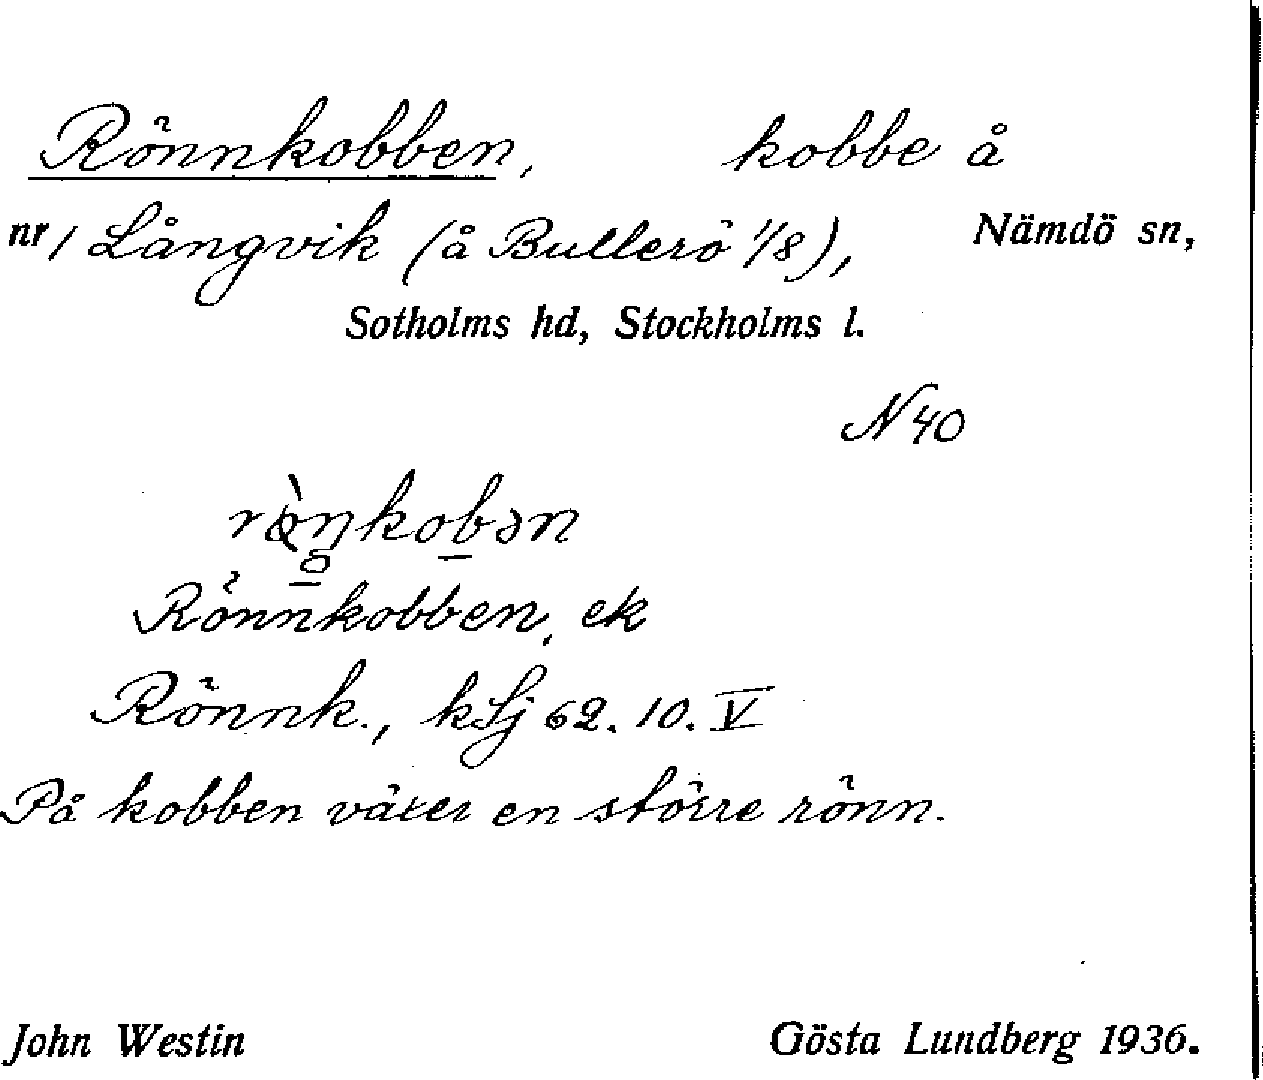 Rönnkobben, kobbe å
nr 1 Långvik (å Bullerö 1/8), Nämdö sn,
Sotholms hd, Stockholms l.
N 40
Rönnkobben, ek
Rönnk., kSj 62. 10. V
På kobben växer en större rönn.
John Westin Gösta Lundberg 1936.